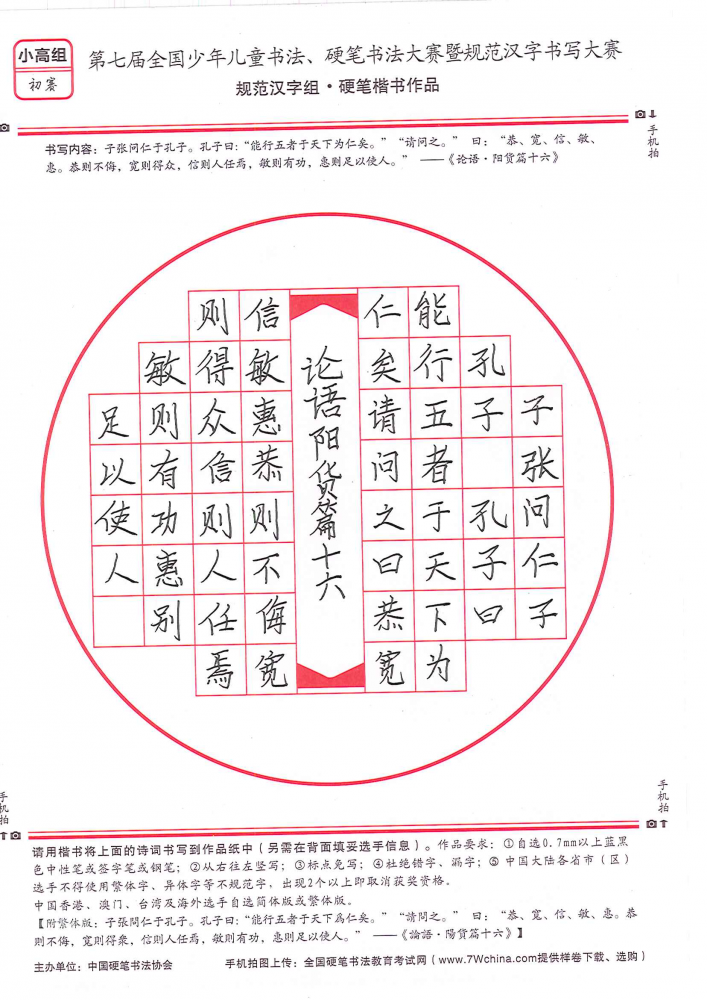 小高组
初赛
第七届全国少年儿童书法、硬笔书法大赛暨规范汉字书写大赛
规范汉字组·硬笔楷书作品
手机拍
书写内容：子张问仁于孔子。孔子曰：“能行五者于天下为仁矣。”“请问之。” 曰：“恭、宽、信、敏、
惠。恭则不侮，宽则得众，信则人任焉，敏则有功，惠则足以使人。” ——《论语·阳货篇十六》
子张问仁子
孔子孔子曰
能行五者于天下为
仁矣请问之曰恭宽
论语阳货篇十六
信敏惠恭则不侮宽
则得众信则人任焉
敏则有功惠别
足以使人
手机拍
手机拍
请用楷书将上面的诗词书写到作品纸中（另需在背面填妥选手信息）。作品要求：①自选0.7mm以上蓝黑
色中性笔或签字笔或钢笔；②从右往左竖写；③标点免写；④杜绝错字、漏字；⑤中国大陆各省市（区）
选手不得使用繁体字、异体字等不规范字，出现2个以上即取消获奖资格。
中国香港、澳门、台湾及海外选手自选简体版或繁体版。
【附繁体版：子張問仁于孔子。孔子曰：“能行五者于天下爲仁矣。”“請問之。” 曰：“恭、寬、信、敏、惠。恭
则不侮，寬则得衆，信则人任焉，敏则有功，惠则足以使人。” ——《論語·陽貨篇十六》】
主办单位：中国硬笔书法协会
手机拍图上传：全国硬笔书法教育考试网（www.7Wchina.com提供样卷下载、选购）